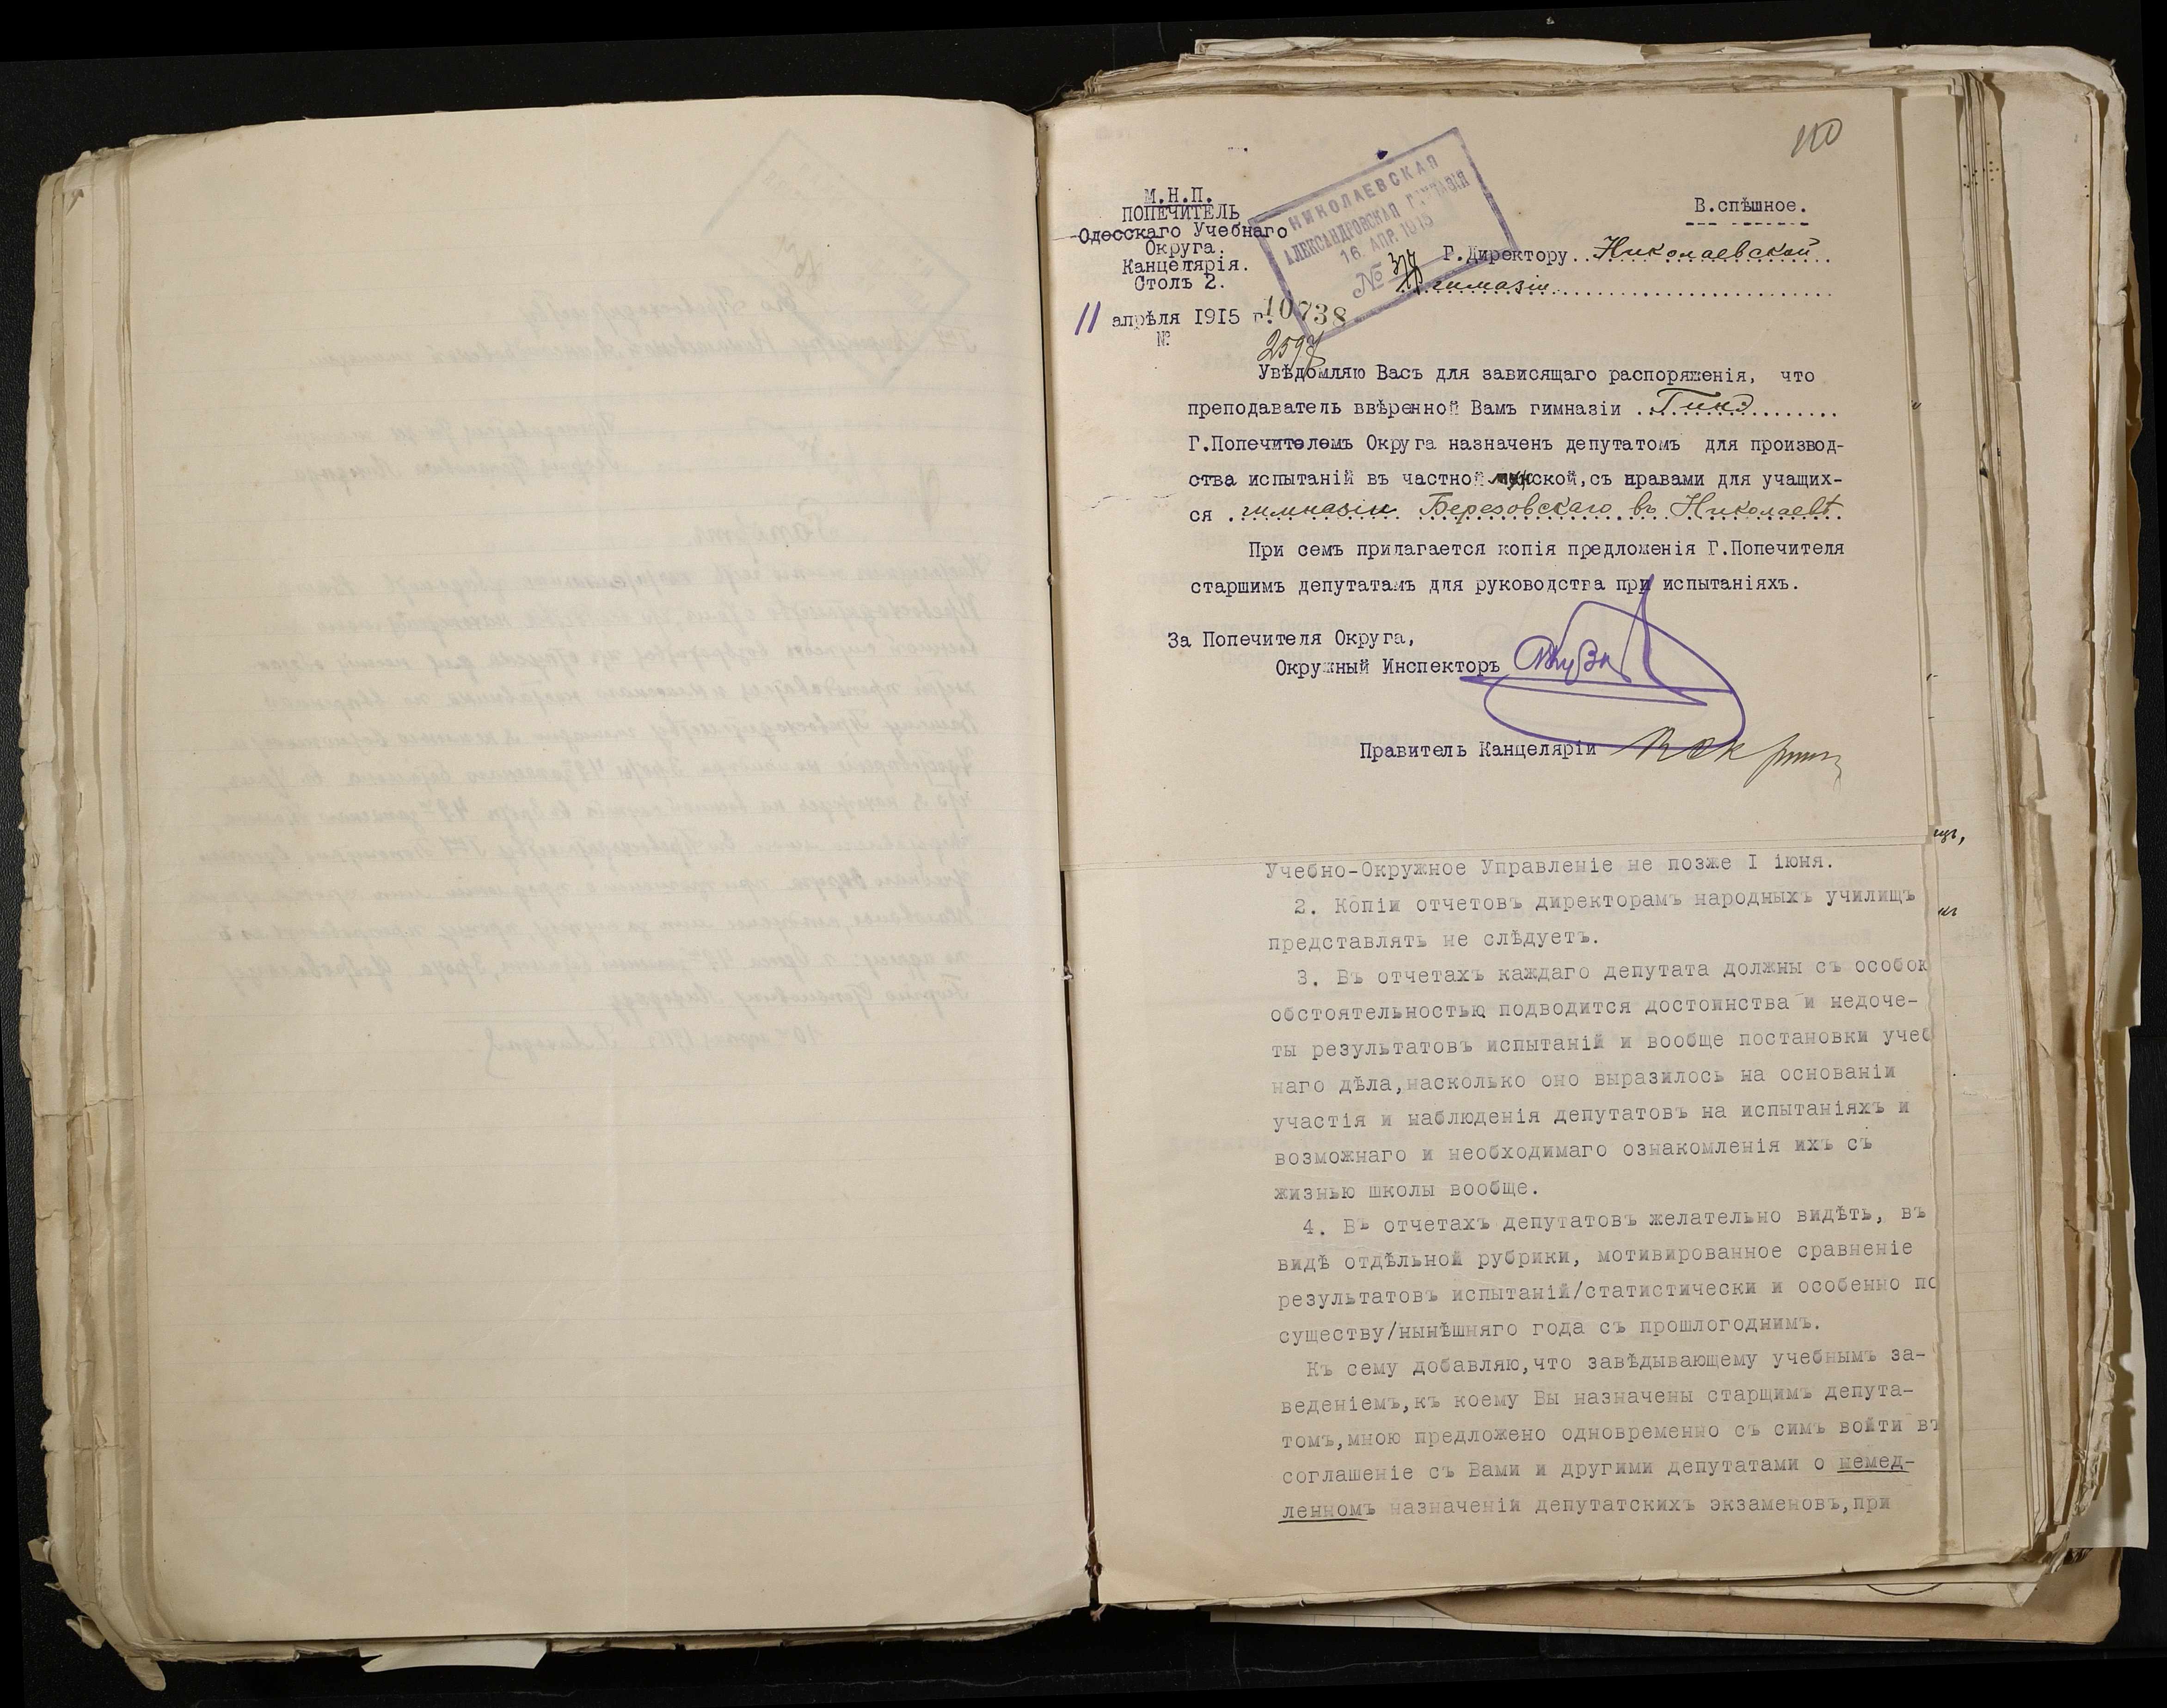 110
М.Н.П.
ПОПЕЧИТЕЛЬ
Одесскаго Учебнаго
Округа.
Канцелярія.
Столъ 2.
11 апрѣля 1915 г.
№
10738
2597
НИКОЛАЕВСКАЯ
АЛЕКСАНДРОВСКАЯ ГИМНАЗІЯ
16. АПР. 1915
№
В.спѣшное.
Г.Директору Николаевской
гимназіи
Увѣдомляю Васъ для зависящаго распоряженія, что
преподаватель ввѣренной Вамъ гимназіи
Г.Попечителемъ Округа назначенъ депутатомъ для производ-
ства испытаній въ частной мужской, съ правами для учащих-
ся гимназіи Березовскаго въ Николаевѣ
При семъ прилагается копія предложенія Г.Попечителя
старшимъ депутатамъ для руководства при испытаніяхъ.
За Попечителя Округа,
Окружный Инспекторъ
Правитель Канцеляріи
Учебно-Окружное Управленіе не позже I іюня.
2. Копіи отчетовъ директорамъ народныхъ училищъ
представлять не слѣдуетъ.
3. Въ отчетахъ каждаго депутата должны съ особою
обстоятельностью подводится достоинства и недоче-
ты результатовъ испытаній и вообще постановки учеб
наго дѣла,насколько оно выразилось на основаніи
участія и наблюденія депутатовъ на испытаніяхъ и
возможнаго и необходимаго ознакомленія ихъ съ
жизнью школы вообще.
4. Въ отчетахъ депутатовъ желательно видѣть, въ
видѣ отдѣльной рубрики, мотивированное сравненіе
результатовъ испытаній/статистически и особенно по
существу/нынѣшняго года съ прошлогоднимъ.
Къ сему добавляю,что завѣдывающему учебнымъ за-
веденіемъ,къ коему Вы назначены старщимъ депута-
томъ,мною предложено одновременно съ симъ войти въ
соглашеніе съ Вами и другими депутатами о немед-
ленномъ назначеніи депутатскихъ экзаменовъ,при